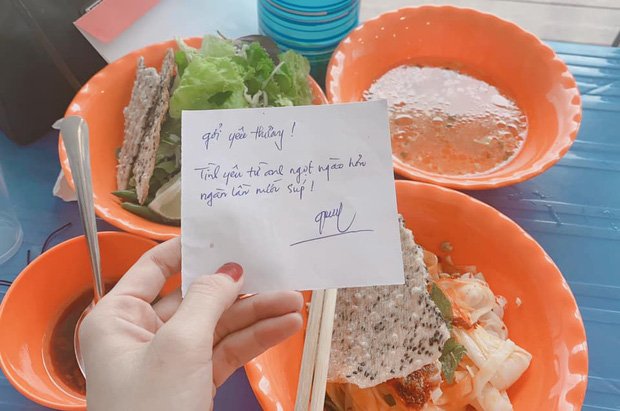 gởi yêu thương!
Tình yêu từ anh ngọt ngào hơn
ngàn lần miếng súp!